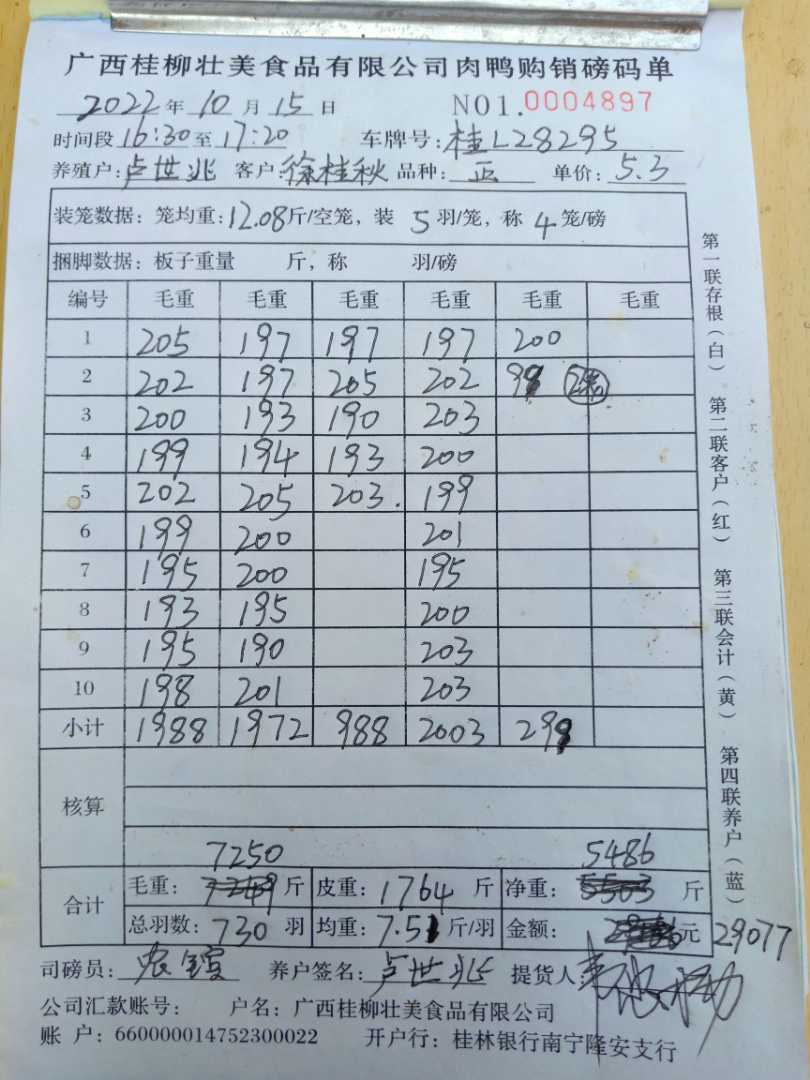 广西桂柳壮美食品有限公司肉鸭购销磅码单
2022年10月15日 NO1.0004897
时间段16:30至17:20 车牌号:桂L28295
养殖户:卢世兆 客户:徐桂秋 品种:正 单价:5.3
装笼数据:笼均重:12.08斤/空笼,装 5 羽/笼,称 4 笼/磅
捆脚数据:板子重量 斤,称 羽/磅
编号 毛重 毛重 毛重 毛重 毛重 毛重
1 205 197 197 197 200
2 202 197 205 202 98
3 200 193 190 203
4 199 194 193 200
5 202 205 203. 199
6 199 200 201
7 195 200 195
8 193 195 200
9 195 190 203
10 198 201 203
小计 1988 1972 988 2003 298
核算
7250 5486
合计 毛重: 斤 皮重:1764斤 净重: 斤
总羽数:730羽 均重:7.51斤/羽 金额: 元 29077
司磅员: 养户签名:卢世兆 提货人
公司汇款账号: 户名:广西桂柳壮美食品有限公司
账 户:660000014752300022 开户行:桂林银行南宁隆安支行
第一联存根(白) 第二联客户(红) 第三联会计(黄) 第四联养户(蓝)